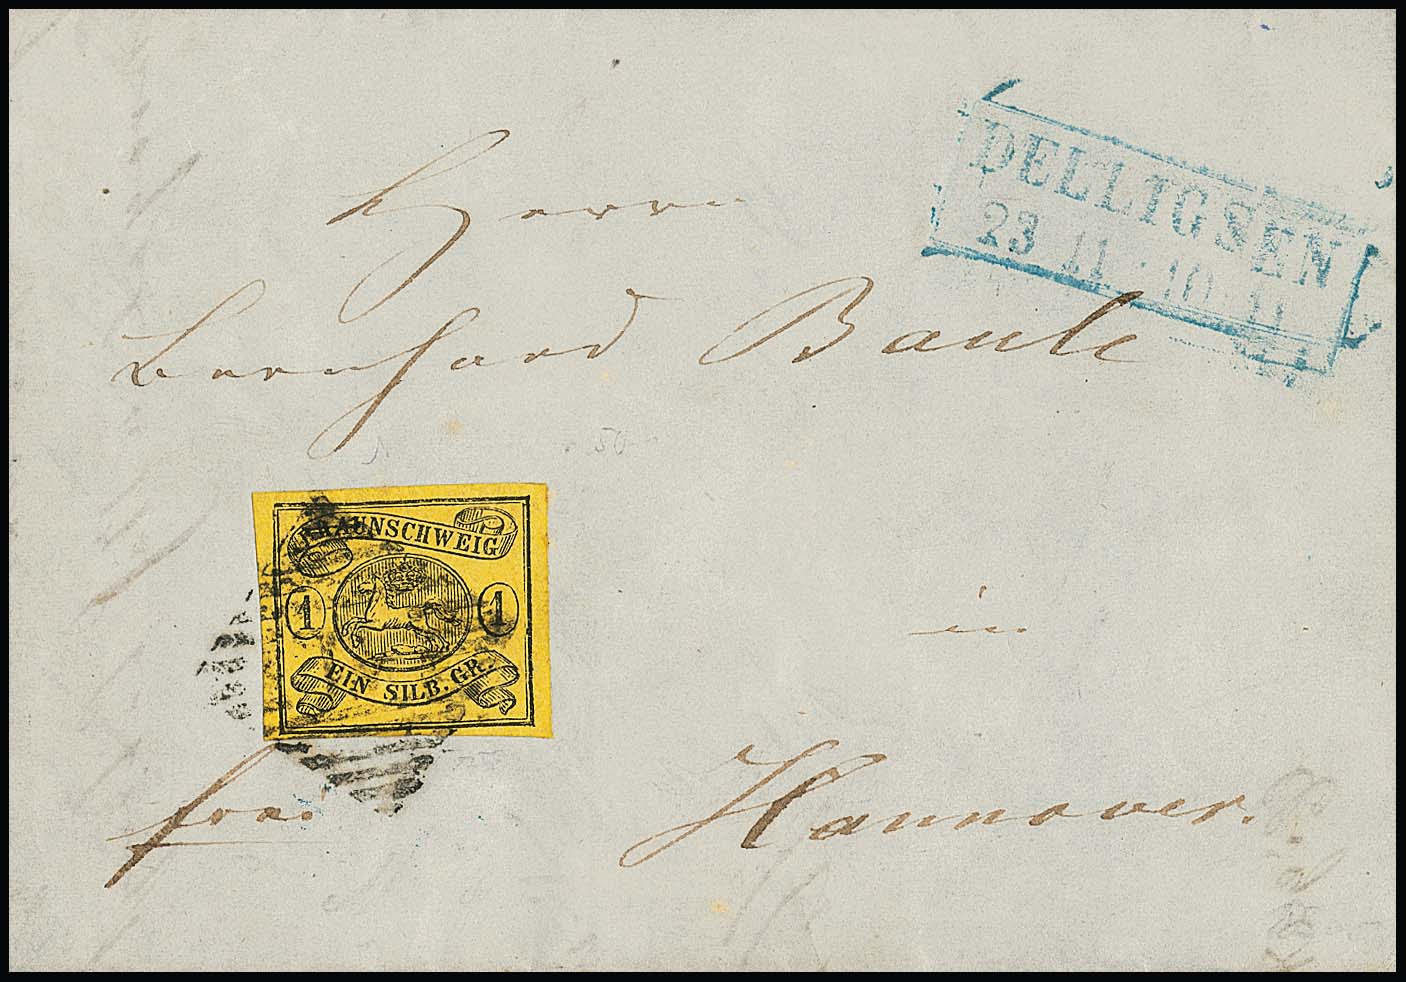 DELLIGSEN
23 11 · 10 · 11
Herrn
Bernhard Baule
50
BRAUNSCHWEIG
1 1
EIN SILB. GR.
in
Hannover.